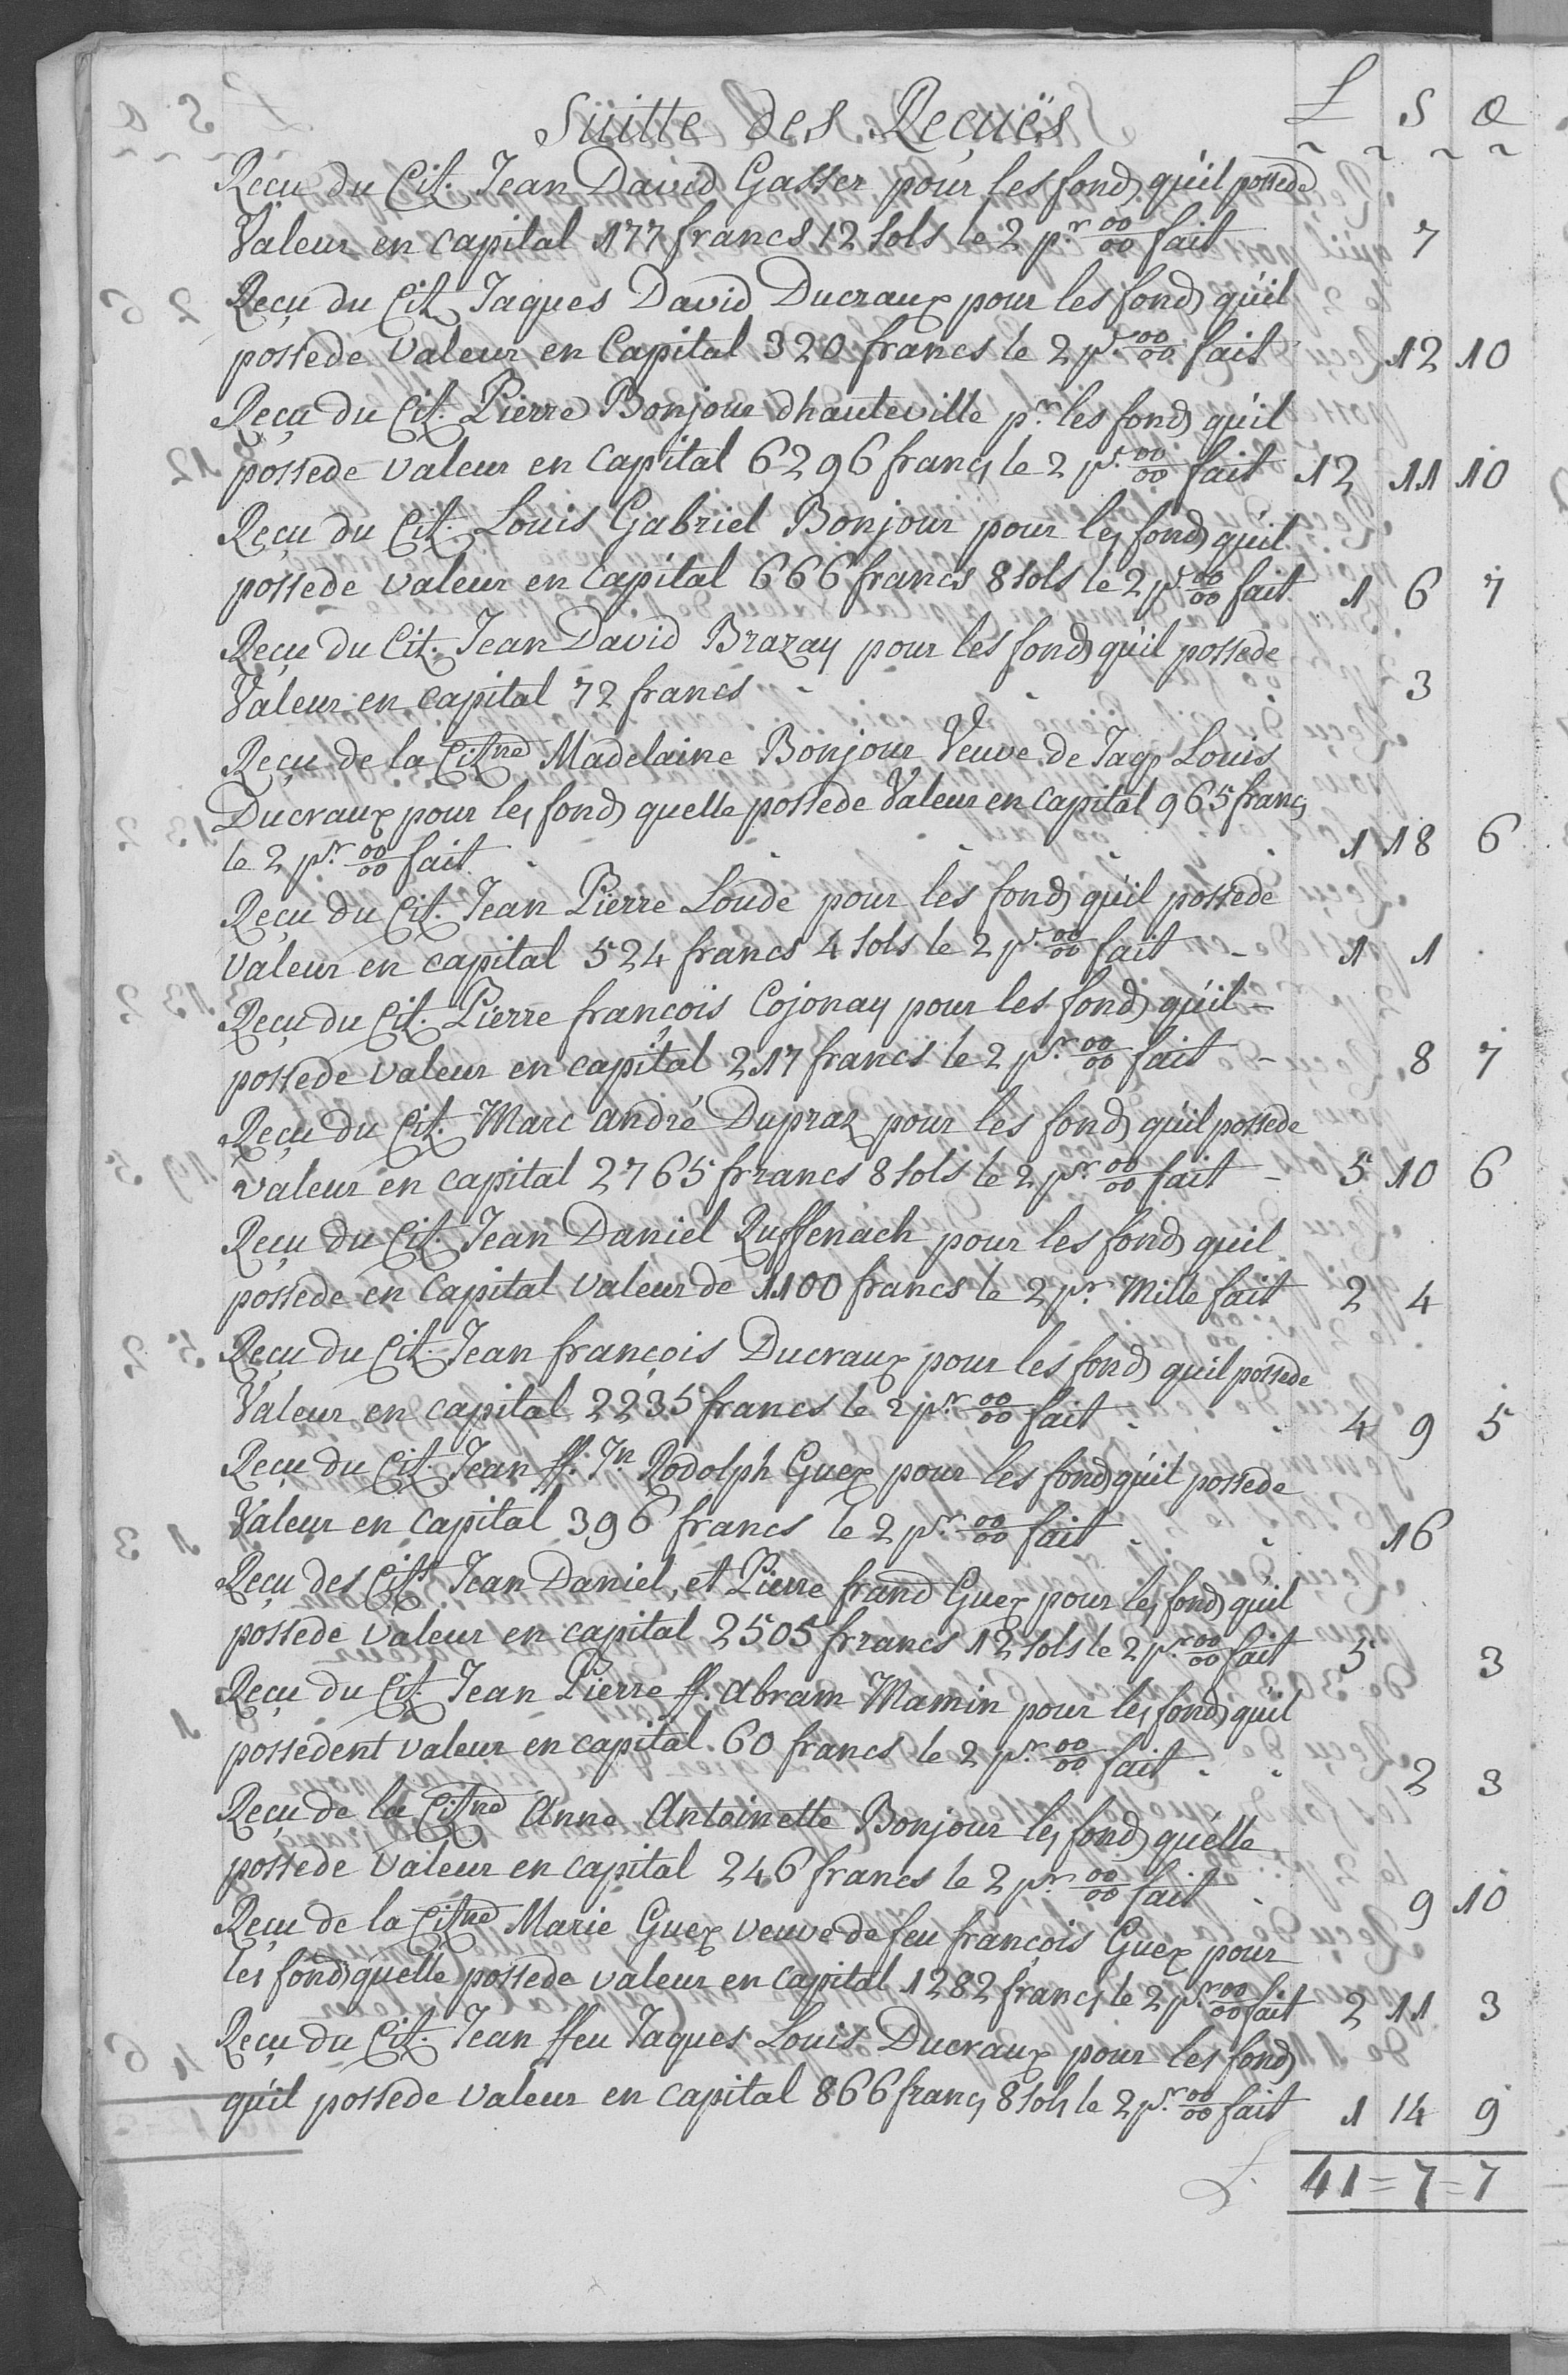 Suitte des Reçuës £ S d
Reçu du Cit. Jean David Gasser pour les fonds qu'il possede
Valeur en capital 177 francs 12 sols le 2 pr. 00/00 fait 7
Reçu du Cit. Jaques David Ducraux pour les fonds qu'il
possede valeur en Capital 320 francs le 2 pr. 00/00 fait 12 10
Reçu du Cit. Pierre Bonjour dhauteville pr. les fonds qu'il
possede valeur en capital 6296 francs le 2 pr. 00/00 fait 12 11 10
Reçu du Cit. Louis Gabriel Bonjour pour les fonds qu'il
possede valeur en capital 666 francs 8 sols le 2 pr. 00/00 fait 1 6 7
Reçu du Cit. Jean David Brazay pour les fonds qu'il possede
Valeur en capital 72 francs 3
Reçu de la Citne Madelaine Bonjour Veuve de Jaqs Louis
Ducraux pour les fonds quelle possede Valeur en capital 965 francs
le 2 pr. 00/00 fait 1 18 6
Reçu du Cit. Jean Pierre Loude pour les fonds qu'il possede
valeur en capital 524 francs 4 sols le 2 pr. 00/00 fait - 1 1
Reçu du Cit. Pierre françois Cojonay pour les fonds qu'il -
possede valeur en capital 217 francs le 2 pr. 00/00 fait - 8 7
Reçu du Cit. Marc andré Dupraz pour les fonds qu'il possede
valeur en capital 2765 francs 8 sols le 2 pr. 00/00 fait - 5 10 6
Reçu du Cit. Jean Daniel Ruffenach pour les fonds quil
possede en Capital valeur de 1100 francs le 2 pr. Mille fait 2 4
Reçu du Cit. Jean françois Ducraux pour les fonds quil possede
Valeur en capital 2235 francs le 2 pr. 00/00 fait 4 9 5
Reçu du Cit. Jean ff. Jn Rodolph Guex pour les fonds qu'il possede
Valeur en capital 396 francs le 2 pr. 00/00 fait 16
Reçu des Cits Jean Daniel, et Pierre frand Guex pour les fonds qu'il
possede valeur en capital 2505 francs 12 sols le 2 pr. 00/00 fait 5 3
Reçu du Cit. Jean Pierre ff. Abram Mamin pour les fonds qu'il
possedent valeur en capital 60 francs le 2 pr. 00/00 fait 2 3
Reçu de la Citne Anne Antoinette Bonjour les fonds qu'elle
possede Valeur en capital 246 francs le 2 pr. 00/00 fait 9 10
Reçu de la Citne Marie Guex veuve de feu françois Guex pour
les fonds quelle possede valeur en capital 1282 francs le 2 pr. 00/00 fait 2 11 3
Reçu du Cit. Jean ffeu Jaques Louis Ducraux pour les fonds
qu'il possede valeur en capital 866 francs 8 sols le 2 pr. 00/00 fait 1 14 9
£. 41 = 7 = 7